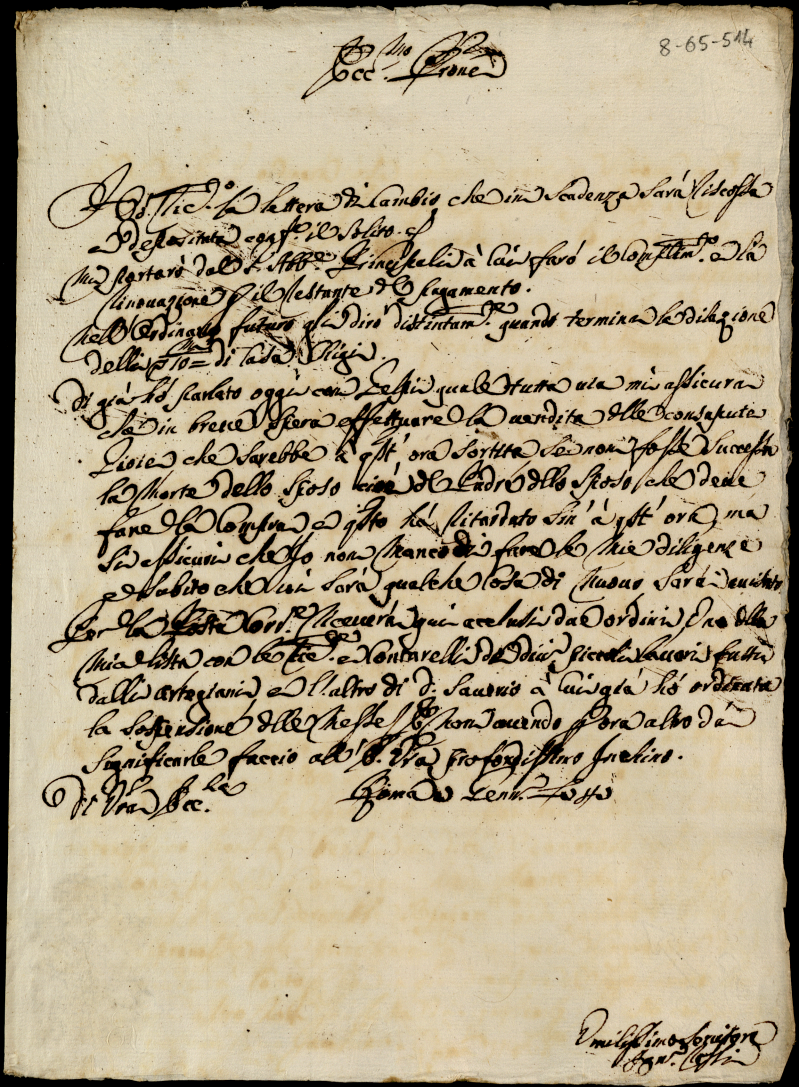 8-65-514
Ecc.mo Prone
Hó Ric.o la lettera di Cambio che in Scadenza sará Riscossa
e depositata conf.e il Solito. et
mi portaró dal S. Abb.e Principali à lui faró il Complim.to e la
per il restante del pagamento.
nell'Ordinario futuro gli diró distintam.e quando termina la dilazione
delli di Casa
di giá hó parlato oggi con quale tutta via mi assicura
che in breve spera effettuare la vendita delle consapute
Gioie che sarebbe à qst' ora sortita se non fosse successa
la Morte dello Sposo cioè del Padre dello Sposo che deve
fare la Compra e qsto há ritardato sin' à qst' ora, ma
si assicuri che Io non Manco di fare le Mie diligenze
e subito che vi sará qualche Cosa di Nuovo Sará avvisato
Per la Posta Corr.e Riceverá qui acclusi due ordini Uno della
Mia lista con le Ric.te e Conticelli di div.i piccoli lavori fatti
dalli artegiani e l'altro di D. Saverio à cui giá hó ordinata
la sospensione delle Messe non avendo Pora altro dá
Significarle faccio all' E. Vra profondissimo Inchino.
Di Vra Ecc.za Roma Genn.
Umilissimo Servitore